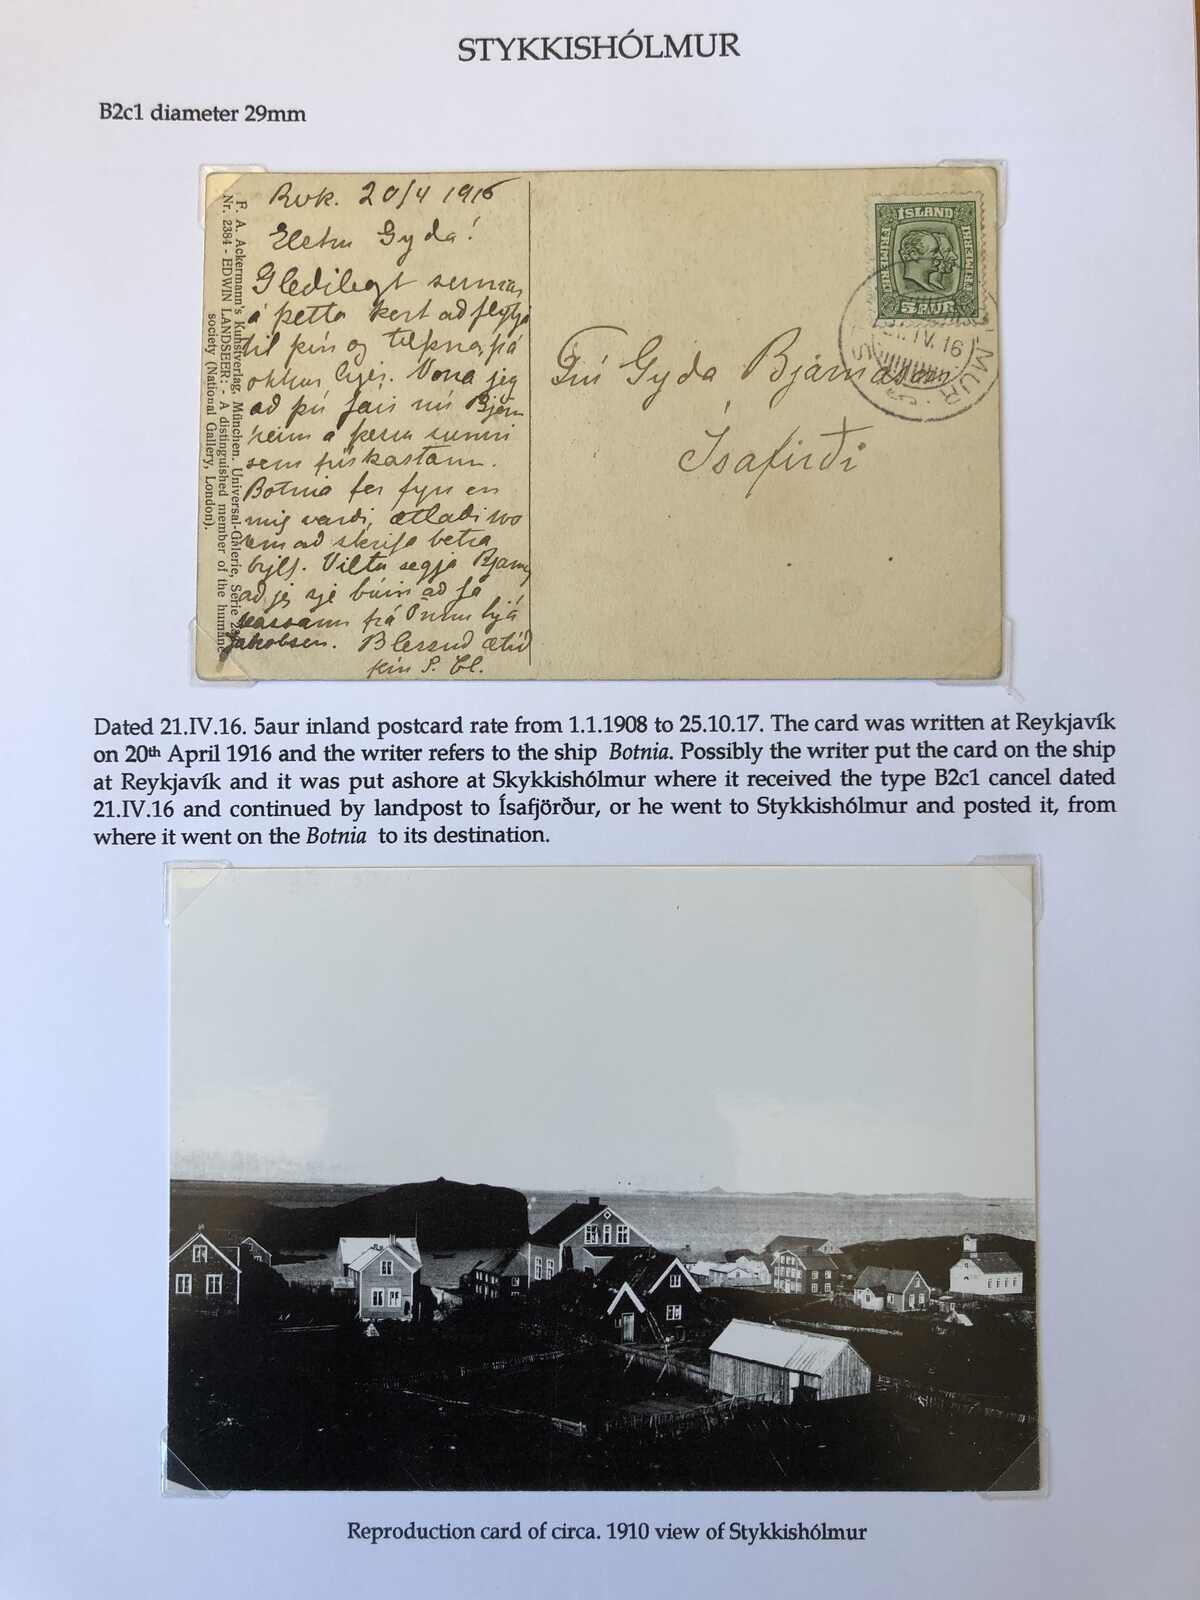 STYKKISHÓLMUR
B2c1 diameter 29mm
F. A. Ackermann's Kunstverlag, München. Universal-Galerie, Serie
Nr. 2384 - EDWIN LANDSEER: A distinguished member of the humane
society (National Gallery, London).
Rvk. 20/4 1916
Gyda!
Gledilegt sumar,
á þetta kort að flytja
til þín og
okkur hjer. Vona jeg
að þú fáir nú Björn
heim á þessu sumri
sem frískastann.
Botnia fer fyr en
mig varði, ætlaði
að skrifa betra
brjef. Viltu segja Bjarna
að jeg sje búin að fá
frá hjá
Jakobsen. Blessuð ætíð
þín
ÍSLAND
5 AUR
IV. 16
MUR
Frú Gyda Bjarnason
Ísafirði
Dated 21.IV.16. 5aur inland postcard rate from 1.1.1908 to 25.10.17. The card was written at Reykjavík
on 20th April 1916 and the writer refers to the ship Botnia. Possibly the writer put the card on the ship
at Reykjavík and it was put ashore at Skykkishólmur where it received the type B2c1 cancel dated
21.IV.16 and continued by landpost to Ísafjörður, or he went to Stykkishólmur and posted it, from
where it went on the Botnia to its destination.
Reproduction card of circa. 1910 view of Stykkishólmur